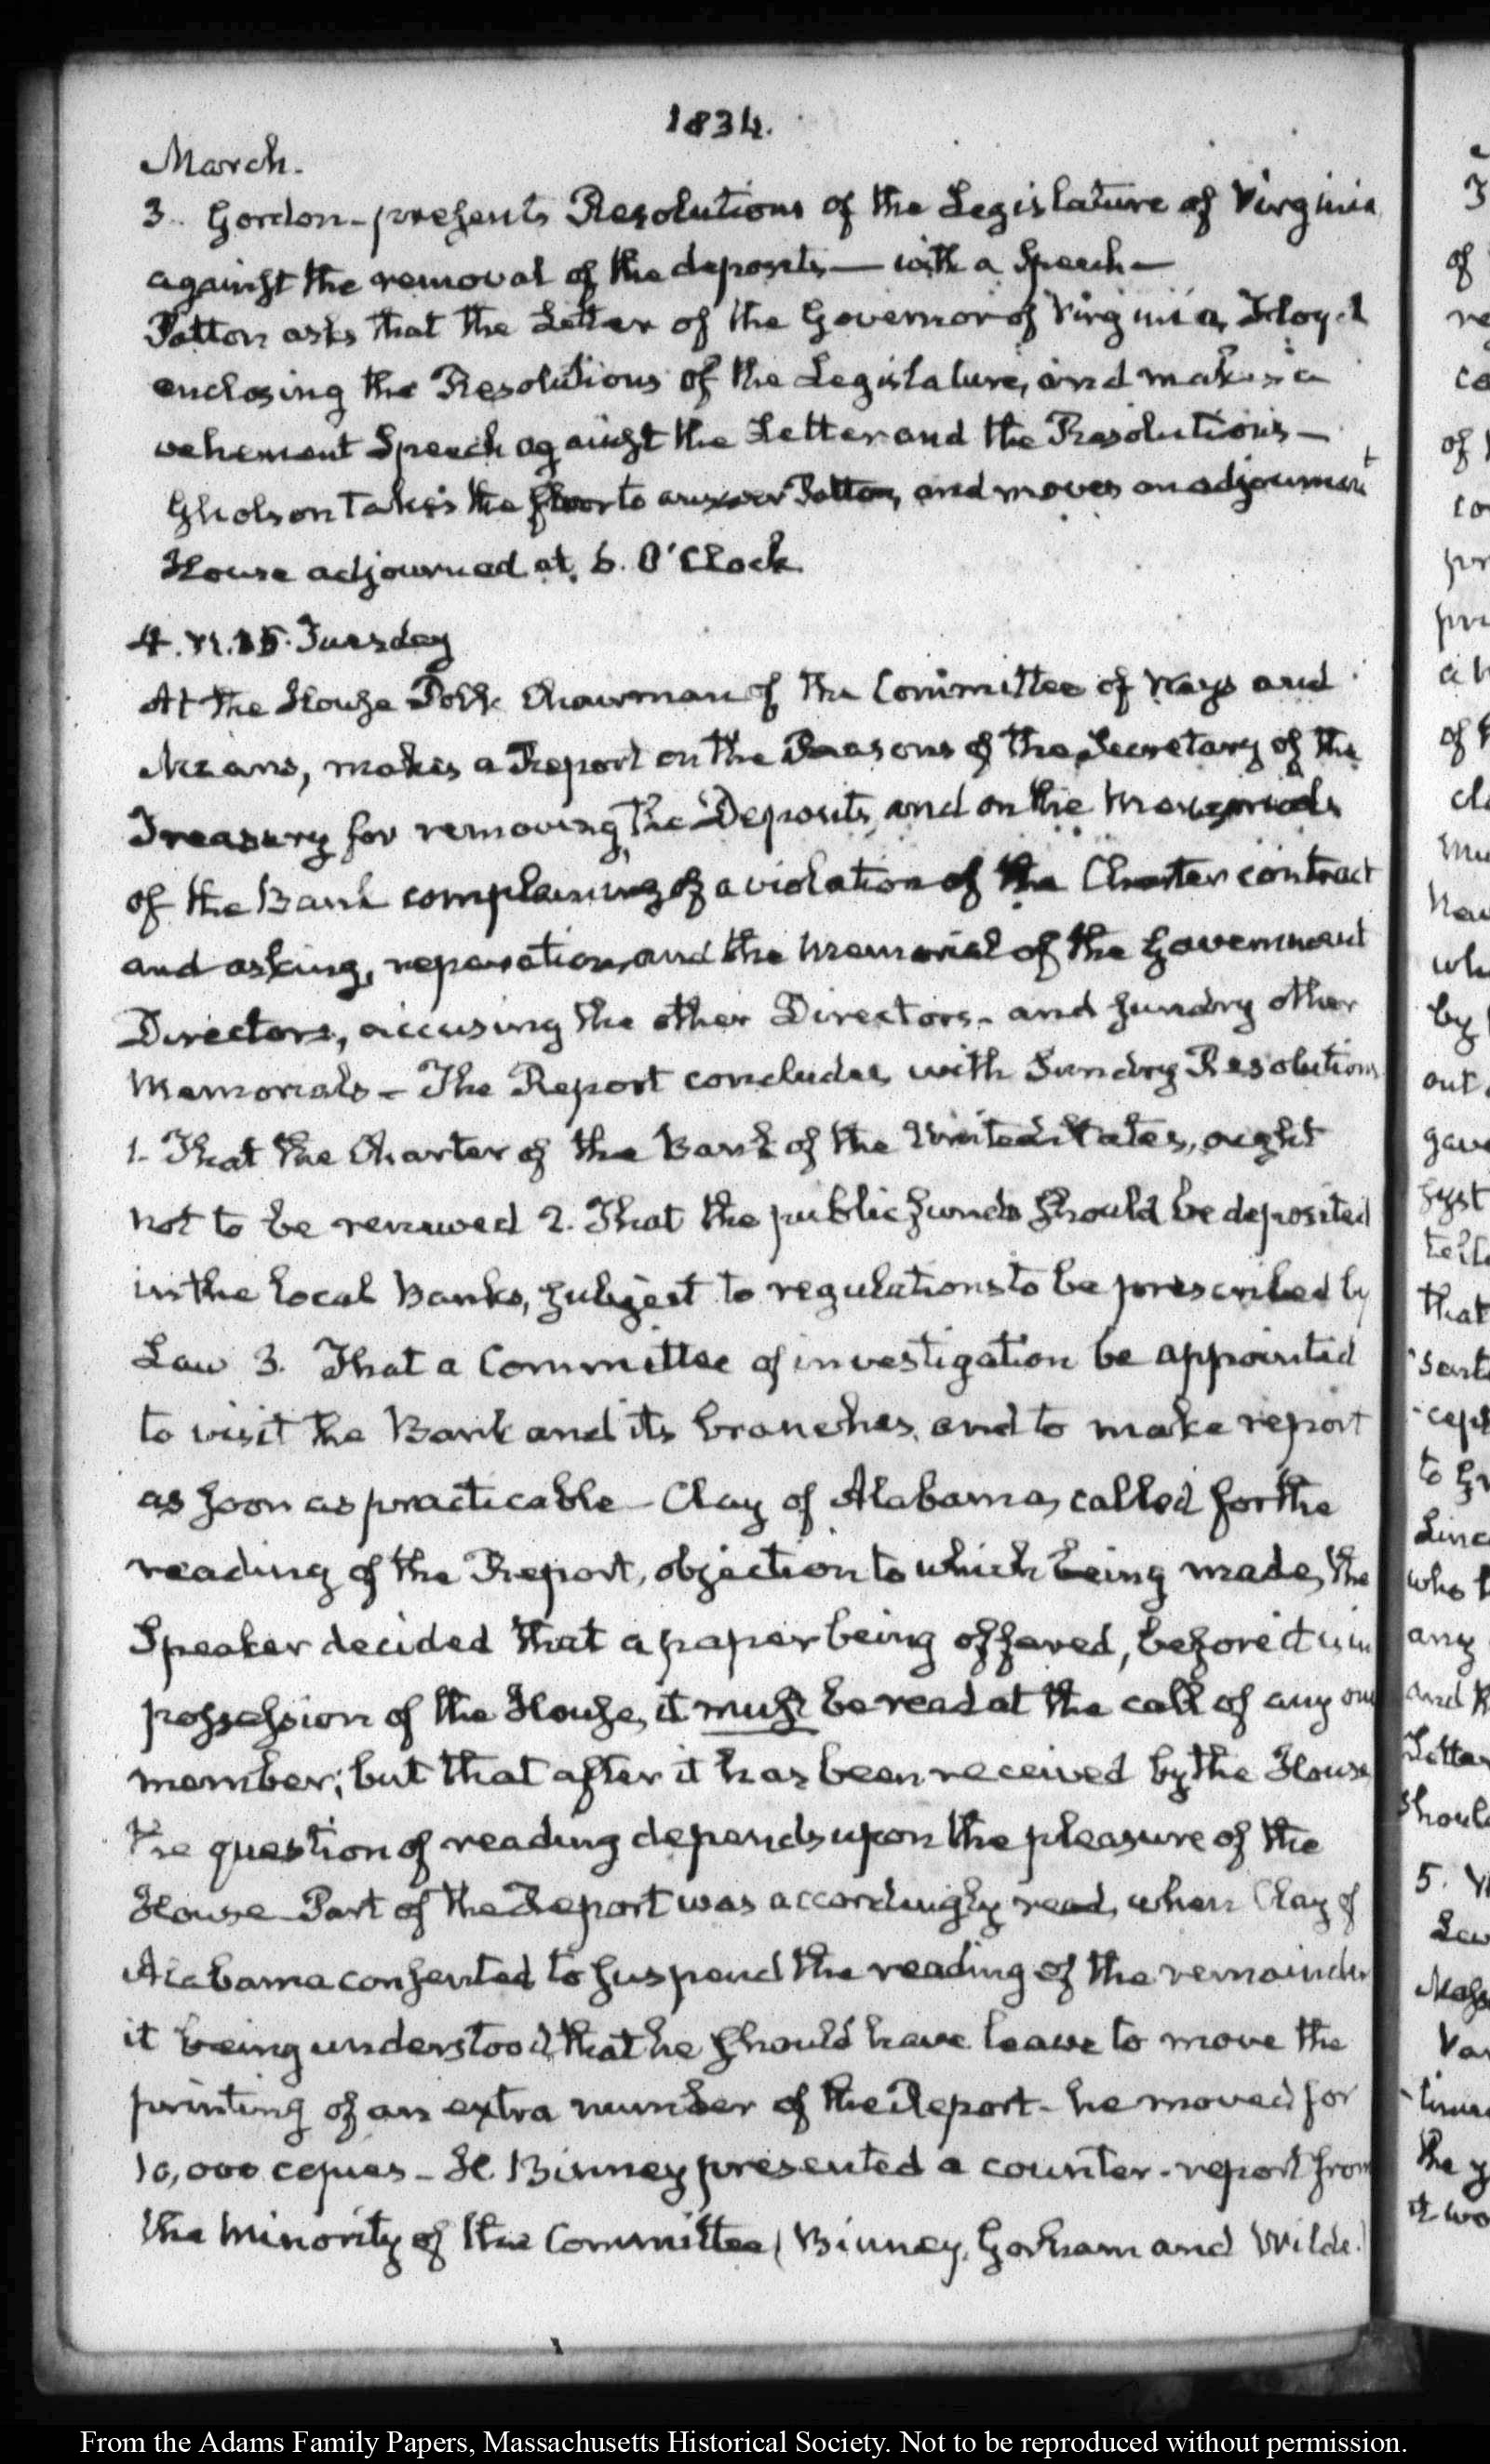 1834.
March.
3. Gordon - presents Resolutions of the Legislature of Virginia
against the removal of the deposits — with a Speech —
Patton asks that the Letter of the Governor of Virginia, Floyd
enclosing the Resolutions of the Legislature, and makes a
vehement Speech against the Letter and the Resolutions —
Gholson takes the floor to answer Patton, and moves an adjournment
House adjourned at 5. O'Clock
4. Tuesday
At the House Polk Chairman of the Committee of Ways and
Means, makes a Report on the Reasons of the Secretary of the
Treasury for removing the Deposits, and on the Memorials
of the Bank complaining of a violation of the Charter contract
and asking, reparation, and the Memorial of the Government
Directors, accusing the other Directors - and sundry other
Memorials - The Report concludes with Sundry Resolutions
1. That the Charter of the Bank of the United States, ought
not to be renewed 2. That the public funds should be deposited
in the local Banks, subject to regulations to be prescribed by
Law 3. That a Committee of investigation be appointed
to visit the Bank and its branches, and to make report
as soon as practicable - Clay of Alabama, called for the
reading of the Report, objection to which being made, the
Speaker decided that a paper being offered, before it is in
possession of the House, it must be read at the call of any one
member; but that after it has been received by the House
the question of reading depends upon the pleasure of the
House Part of the Report was accordingly read, when Clay of
Alabama consented to suspend the reading of the remainder
it being understood that he should have leave to move the
printing of an extra number of the Report - he moved for
10,000 copies - H. Binney presented a counter-report from
the Minority of the Committee (Binney, Gorham and Wilde.)
From the Adams Family Papers, Massachusetts Historical Society. Not to be reproduced without permission.